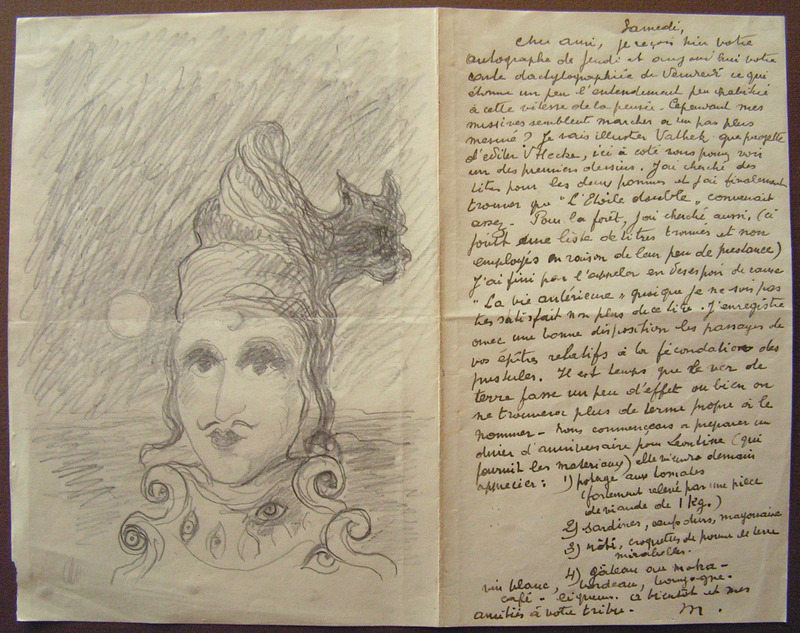 Samedi,
Cher ami, je reçois hier votre
autographe de Jeudi et aujourd'hui votre
carte dactylographiée de Vendredi ce qui
étonne un peu l'entendement peu habitué
à cette vitesse de la pensée. Cependant mes
missives semblent marcher à un pas plus
mesuré? Je vais illustrer Vathek que projette
d'éditer V Hecke, ici à côté vous pouvez voir
un des premiers dessins. J'ai cherché des
titres pour les deux pommes et j'ai finalement
trouver que "L'Etoile double" convenait
assez - Pour la forêt, j'ai cherché aussi, (ci
joint une liste de titres trouvés et non
employés en raison de leur peu de prestance)
J'ai fini par l'appeler en désespoir de cause
"La vie antérieure" quoique je ne sois pas
très satisfait non plus de ce titre. J'enregistre
avec une bonne disposition les passages de
vos épîtres relatifs à la fécondation des
pustules. Il est temps que le ver de
terre fasse un peu d'effet ou bien on
ne trouvera plus de terme propre à le
nommer - Nous commençons à préparer un
dîner d'anniversaire pour Léontine (qui
fournit les matériaux) elle viendra demain
apprécier : 1) potage aux tomates
(fortement relevé par une pièce
de viande de 1 kg.)
2) sardines, oeufs durs, mayonnaise
3) rôti, croquettes de pomme de terre
mirabelles.
4) gâteau au moka -
vin blanc, bordeau, bourgogne.
café - liqueurs. A bientôt et mes
amitiés à votre tribu. M.